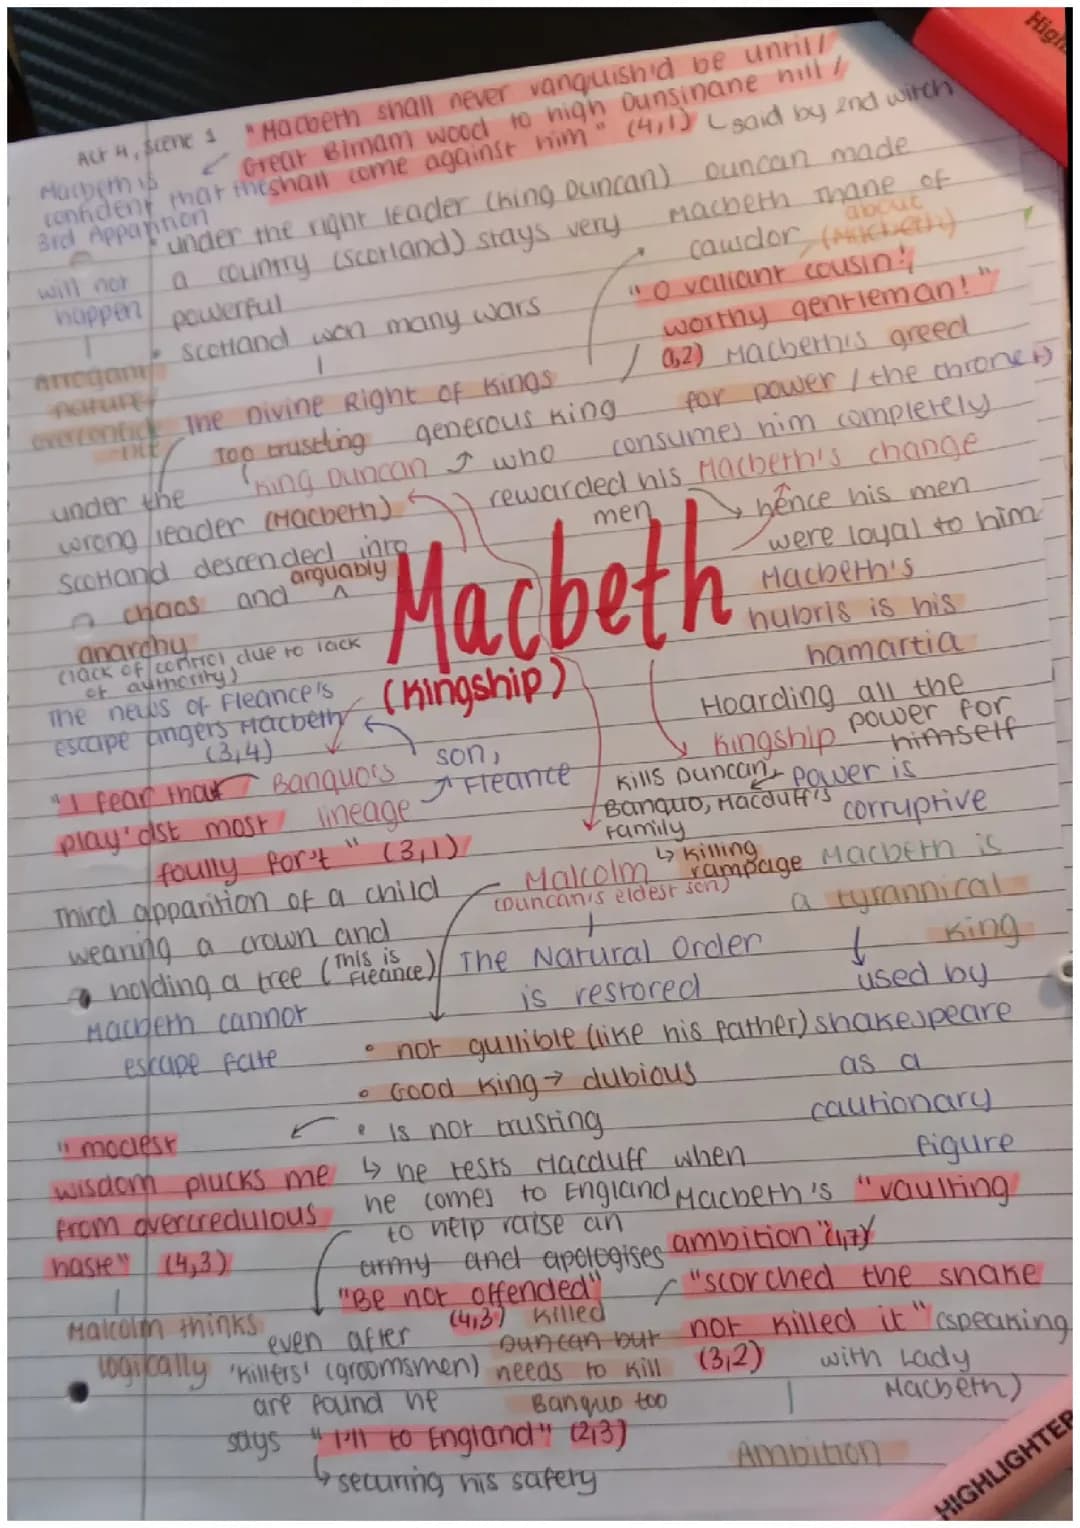 Act 4, scene 1
"Macbeth shall never vanquish'd be until /
Great Birnam wood to high Dunsinane hill /
shall come against him" (4,1)
said by 2nd witch
Macbeth is
confident that the
3rd Apparition
will not
happen
Arrogant
nature /
• under the right leader (King Duncan)
a country (scotland) stays very
powerful
• Scotland won many wars
Duncan made
Macbeth Thane of
cawdor
about
(Macbeth)
"O valiant cousin!,
worthy gentleman!"
(1,2)
The Divine Right of Kings
Too trusting
King Duncan
generous King
who
rewarded his
men
hence his men
were loyal to him
Macbeth's greed
for power / the throne
consumes him completely
Macbeth's change
under the
wrong leader (Macbeth)
Scotland descended into
chaos and arguably
anarchy
(lack of control due to lack
of authority)
Macbeth
(Kingship)
Macbeth's
hubris is his
hamartia
The news of Fleance's
escape angers Macbeth
(3,4)
Banquo's
lineage
son,
Fleance
"I fear thou
play'dst most
foully for't" (3,1)
Kingship
Hoarding all the
power for
himself
Kills Duncan,
Banquo, Macduff's
family
↳ killing
rampage
power is
corruptive
Third apparition of a child
wearing a crown and
holding a tree (This is Fleance)
Macbeth cannot
escape fate
Malcolm
(Duncan's eldest son)
The Natural Order
is restored
Macbeth is
a tyrannical
King
used by
shakespeare
as a
cautionary
figure
• not gullible (like his father)
• Good King → dubious
• is not trusting
↳ he tests Macduff when
he comes to England
to help raise an
army and apologises
"Be not offended"
(4,3)
"modest
wisdom plucks me
from overcredulous
haste" (4,3)
Malcolm thinks
logically
even after
'killers' (groomsmen)
are found he
says "I'll to England" (2,3)
↳ securing his safety
Macbeth's "vaulting
ambition" (1,7)
"scorched the snake
not killed it" (speaking
(3,2) with Lady
Macbeth)
killed
Duncan but
needs to kill
Banquo too
Ambition
High
HIGHLIGHTER